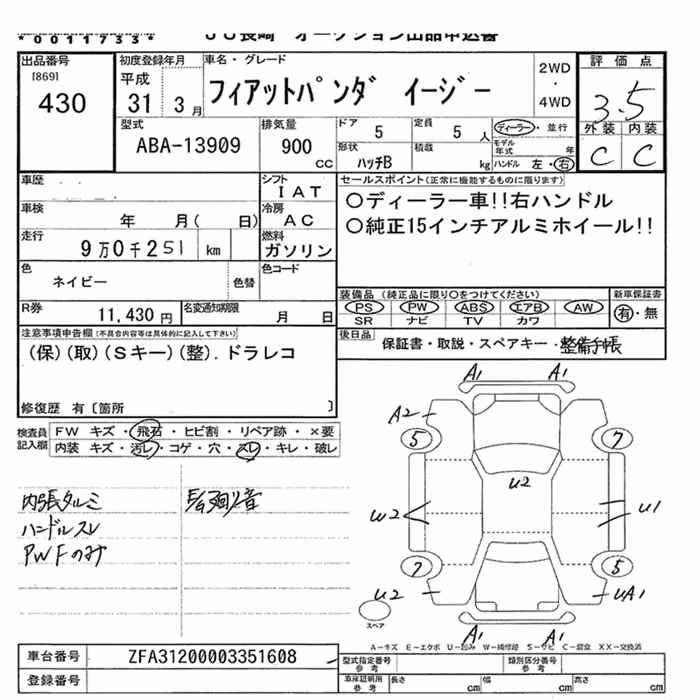 * 0 0 1 1 7 3 3 *
ＪＵ長崎 オークション出品申込書
出品番号
[869]
430
初度登録年月
平成
31 3 月
車名・グレード
フィアットパンダ イージー
2WD
・
4WD
評価点
3.5
外装 内装
C C
型式
ABA-13909
排気量
900
CC
ドア 5
定員 5 人
形状 ハッチB
積載 kg
ディーラー・並行
モデル年式 年
ハンドル 左・右
車歴
シフト
IAT
車検 年 月( 日)
冷房
AC
走行
9万0千251 km
燃料
ガソリン
色
ネイビー
色替
色コード
R券
11,430 円
名変通知期限
月 日
セールスポイント(正常に機能するものに限ります)
○ディーラー車!!右ハンドル
○純正15インチアルミホイール!!
装備品(純正品に限り○をつけてください)
PS PW ABS エアB AW
SR ナビ TV カワ
新車保証書
有・無
後日品
保証書・取説・スペアキー・整備手帳
注意事項申告欄(不具合内容等は具体的に記入して下さい)
(保)(取)(Sキー)(整).ドラレコ
修復歴 有〔箇所 〕
検査員記入欄
FW キズ・飛石・ヒビ割・リペア跡・×要
内装 キズ・汚レ・コゲ・穴・スレ・キレ・破レ
内張タルミ
ハンドルスレ
PWFのみ
異音
A1 A1
A2
5 7
U2
W2 U1
7 5
U2 UA1
A1 A1
スペア
A－キズ E－エクボ U－凹み W－補修跡 S－サビ C－腐食 XX－交換済
車台番号
ZFA31200003351608
登録番号
型式指定番号 参考
類別区分番号 参考
車庫証明用 参考
長さ cm
幅 cm
高さ cm